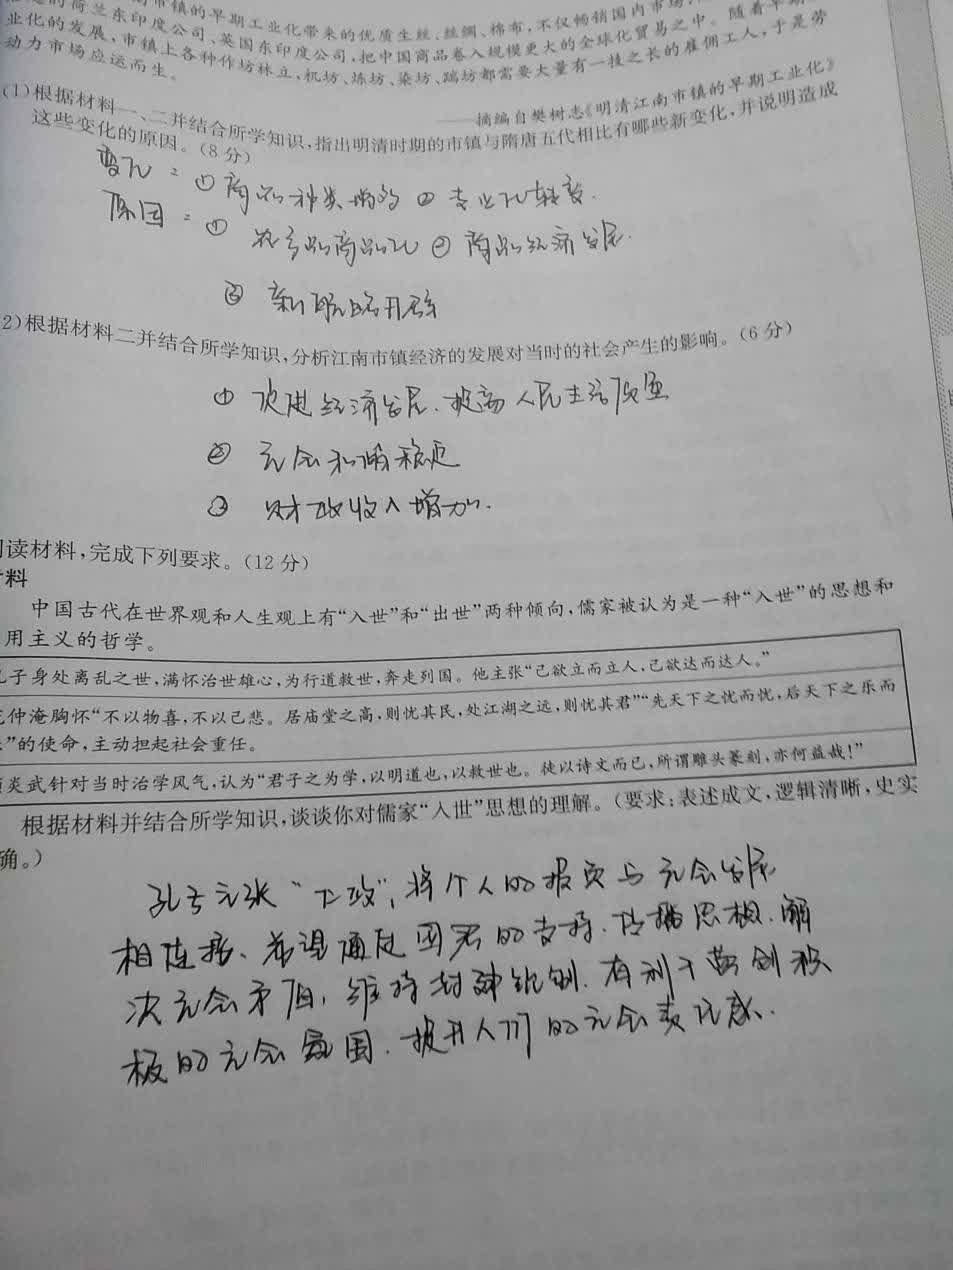 的荷兰东印度公司、英国东印度公司,把中国商品卷入规模更大的全球化贸易之中。随着早期
市镇的早期工业化带来的优质生丝、丝绸、棉布,不仅畅销国内市场,
业化的发展,市镇上各种作坊林立,机坊、炼坊、染坊、踹坊都需要大量有一技之长的雇佣工人,于是劳
动力市场应运而生。
——摘编自樊树志《明清江南市镇的早期工业化》
(1)根据材料一、二并结合所学知识,指出明清时期的市镇与隋唐五代相比有哪些新变化,并说明造成
这些变化的原因。(8分)
变化:①商品种类增多 ②专业化转变.
原因:① 农产品商品化 ②商品经济发展.
③ 新航路开辟
2)根据材料二并结合所学知识,分析江南市镇经济的发展对当时的社会产生的影响。(6分)
① 促进经济发展.提高人民生活质量
② 社会和谐稳定
③ 财政收入增加.
读材料,完成下列要求。(12分)
料
中国古代在世界观和人生观上有“入世”和“出世”两种倾向,儒家被认为是一种“入世”的思想和
用主义的哲学。
孔子身处离乱之世,满怀治世雄心,为行道救世,奔走列国。他主张“己欲立而立人,己欲达而达人。”
仲淹胸怀“不以物喜,不以己悲。居庙堂之高,则忧其民,处江湖之远,则忧其君”“先天下之忧而忧,后天下之乐而
”的使命,主动担起社会重任。
炎武针对当时治学风气,认为“君子之为学,以明道也,以救世也。徒以诗文而已,所谓雕头篆刻,亦何益哉!”
根据材料并结合所学知识,谈谈你对儒家“入世”思想的理解。(要求:表述成文,逻辑清晰,史实
确。)
孔子主张“仁政”,将个人的报负与社会发展
相连接、希望通过国君的支持.传播思想.解
决社会矛盾,维持封建统制.有利于营创积
极的社会氛围.提升人们的社会责任感.